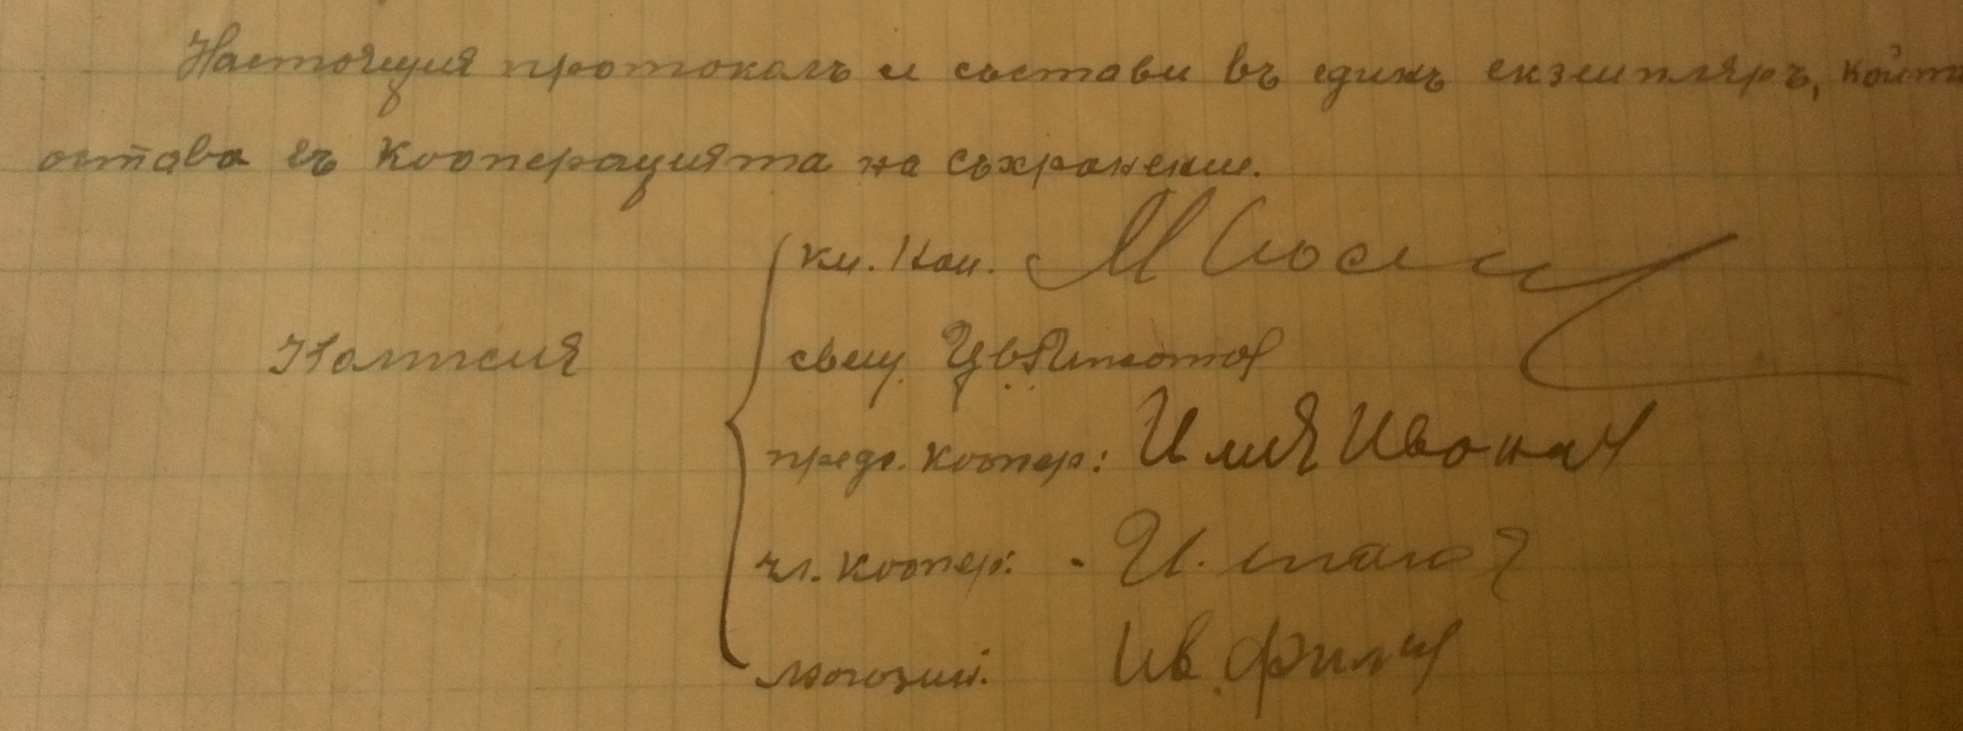 Настоящия протоколъ се състави въ единъ екземпляръ, който
остава въ Кооперацията на съхранение.
км. нам.
Комисия
свещ. Цв.
предс. коопер: Илия Иванов
чл. коопер: И.
магазин. Ив. Фили